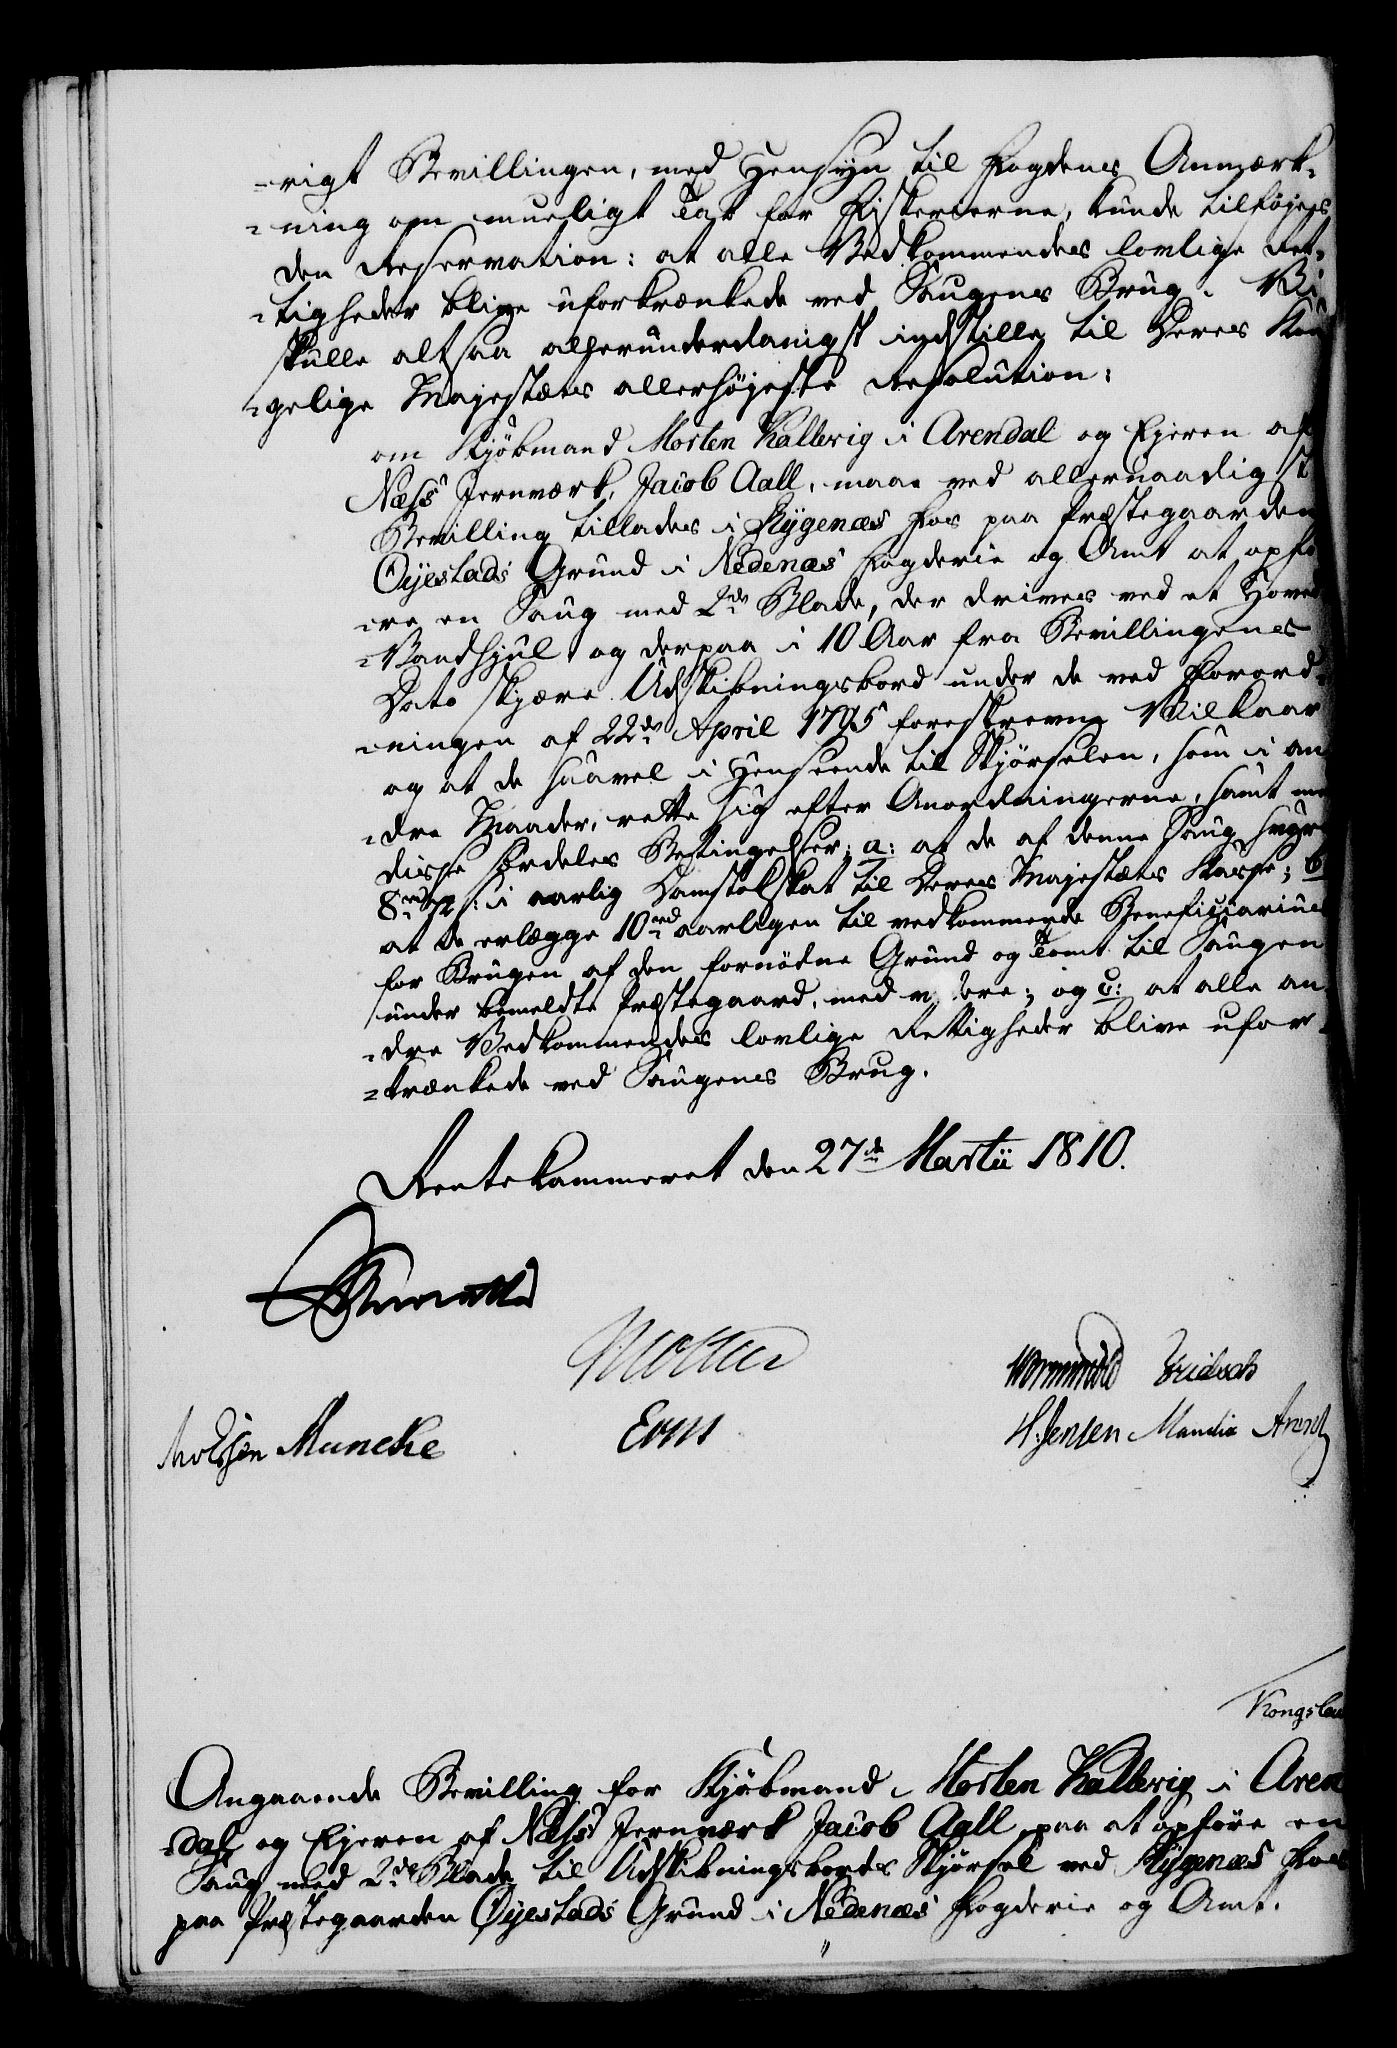 -rigt Bevillingen, med Hensyn til Fogdens Anmærk-
-ning om mueligt Tab for Fiskerierne, kunde tilføjes
den Reservation: at alle Vedkommendes lovlige Ret-
-tigheder blive uforkrænkede ved Saugens Brug. Vi
skulle altsaa allerunderdanigst indstille til Deres Kon
-gelige Majestæts allerhøjeste Resolution:
om Kjøbmand Morten Kallevig i Arendal og Ejeren af
Næss Jernværk, Jacob Aall, maae ved allernaadigst
Bevilling tillades i Rygenæs Fos paa Præstegaarden
Öyestads Grund i Nedenæs Fogderie og Amt at opfø
-re en Saug med 2de Blade, der drives ved et Hoved
-Vandhjul og derpaa i 10 Aar fra Bevillingens
Dato skjære Udskibningsbord under de ved Forord-
-ningen af 22de April 1795 foreskrevne Vilkaar
og at de saavel i Henseende til Skjørselen, som i an
-dre Maader, rette sig efter Anordningerne, samt med
disse særdeles Betingelser: a: at de af denne Saug svare
8 rd aarlig Damstokskat til Deres Majestæts Kasse; b
at de erlægge 10 rd aarligen til vedkommende Beneficiarius
for Brugen af den fornødne Grund og Tomt til Saugen
under bemeldte Præstegaard, med videre; og c: at alle an
-dre Vedkommendes lovlige Rettigheder blive ufor-
-krænkede ved Saugens Brug.
Rentekammeret den 27de Martii 1810.
Wormskiold
H. Jensen Arentz
Muncke
Kongslau
Angaaende Bevilling for Kjøbmand Morten Kallevig i Aren
-dal og Ejeren af Næss Jernværk Jacob Aall paa at opføre en
Saug med 2de Blade til Udskibningsbords Skjørsel ved Rygenæs Fos
paa Præstegaarden Öyestads Grund i Nedenæs Fogderie og Amt.